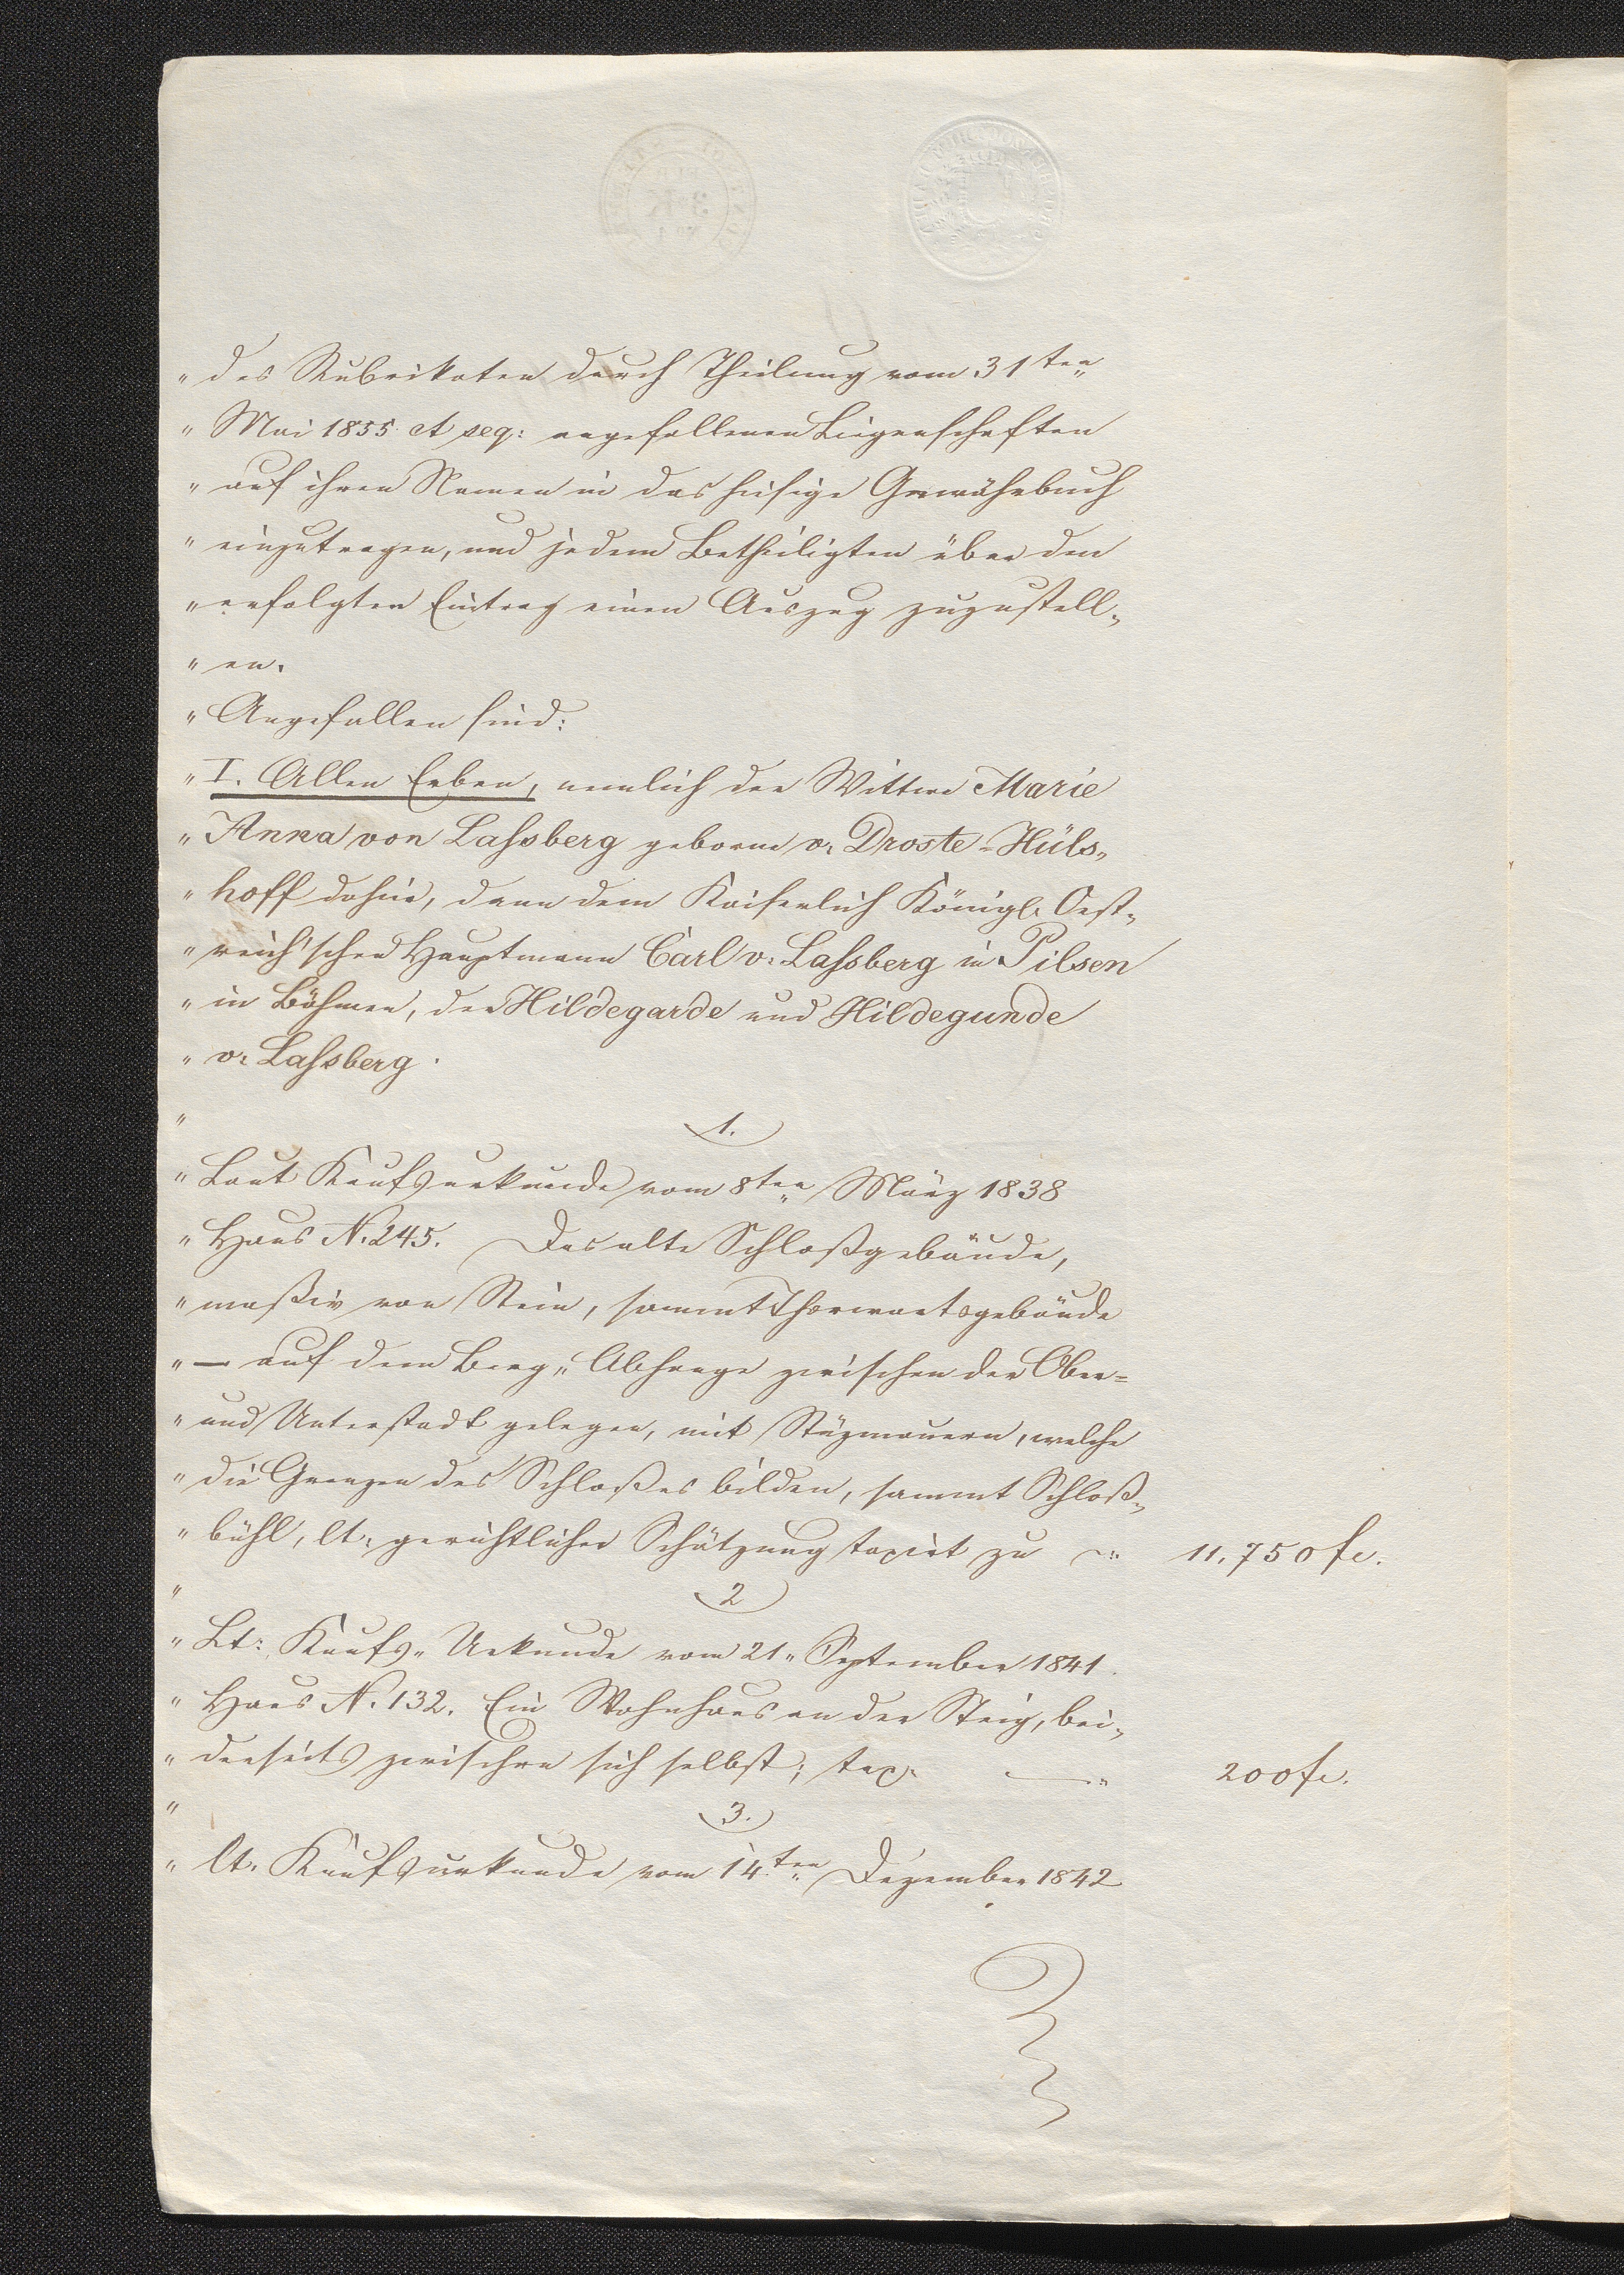 " des Rubrikaten durch Theilung vom 31ten
" Mai 1855 et seq: angefallenen Liegenschaften
" auf ihren Namen in das hiesige Gewährbuch
" einzutragen, und jedem Betheiligten über den
" erfolgten Eintrag einen Auszug zuzustell„
" en.
" Angefallen sind:
" I. Allen Erben, nemlich der Wittwe Marie
" Anna von Laßsberg geborne v. Droste-Hüls„
" hoff dahier, dann dem Kaiserlich Königl. Oest„
" reich'schen Hauptmann Carl v. Laßsberg in Pilsen
" in Böhmen, der Hildegarde und Hildegunde
" v. Laßsberg.
" 1.
" Laut Kaufsurkunde vom 8ten März 1838
" Haus N. 245. Das alte Schloßgebäude,
" maßiv von Stein, sammt Thorwartsgebäude
" — auf dem Berg„ Abhange zwischen der Ober=
" und Unterstadt gelegen, mit Stüzmauern, welche
" die Grenzen des Schloßes bilden, sammt Schloß„
" bühl, lt. gerichtlicher Schätzung taxirt zu 11,750 fr.
" 2
" Lt: Kaufs„ Urkunde vom 21„ September 1841.
" Haus N. 132. Ein Wohnhaus an der Steig, bei„
" derseits zwischen sich selbst; tax. 200 fr.
" 3.
" lt. Kaufsurkunde vom 14.ten Dezember 1842